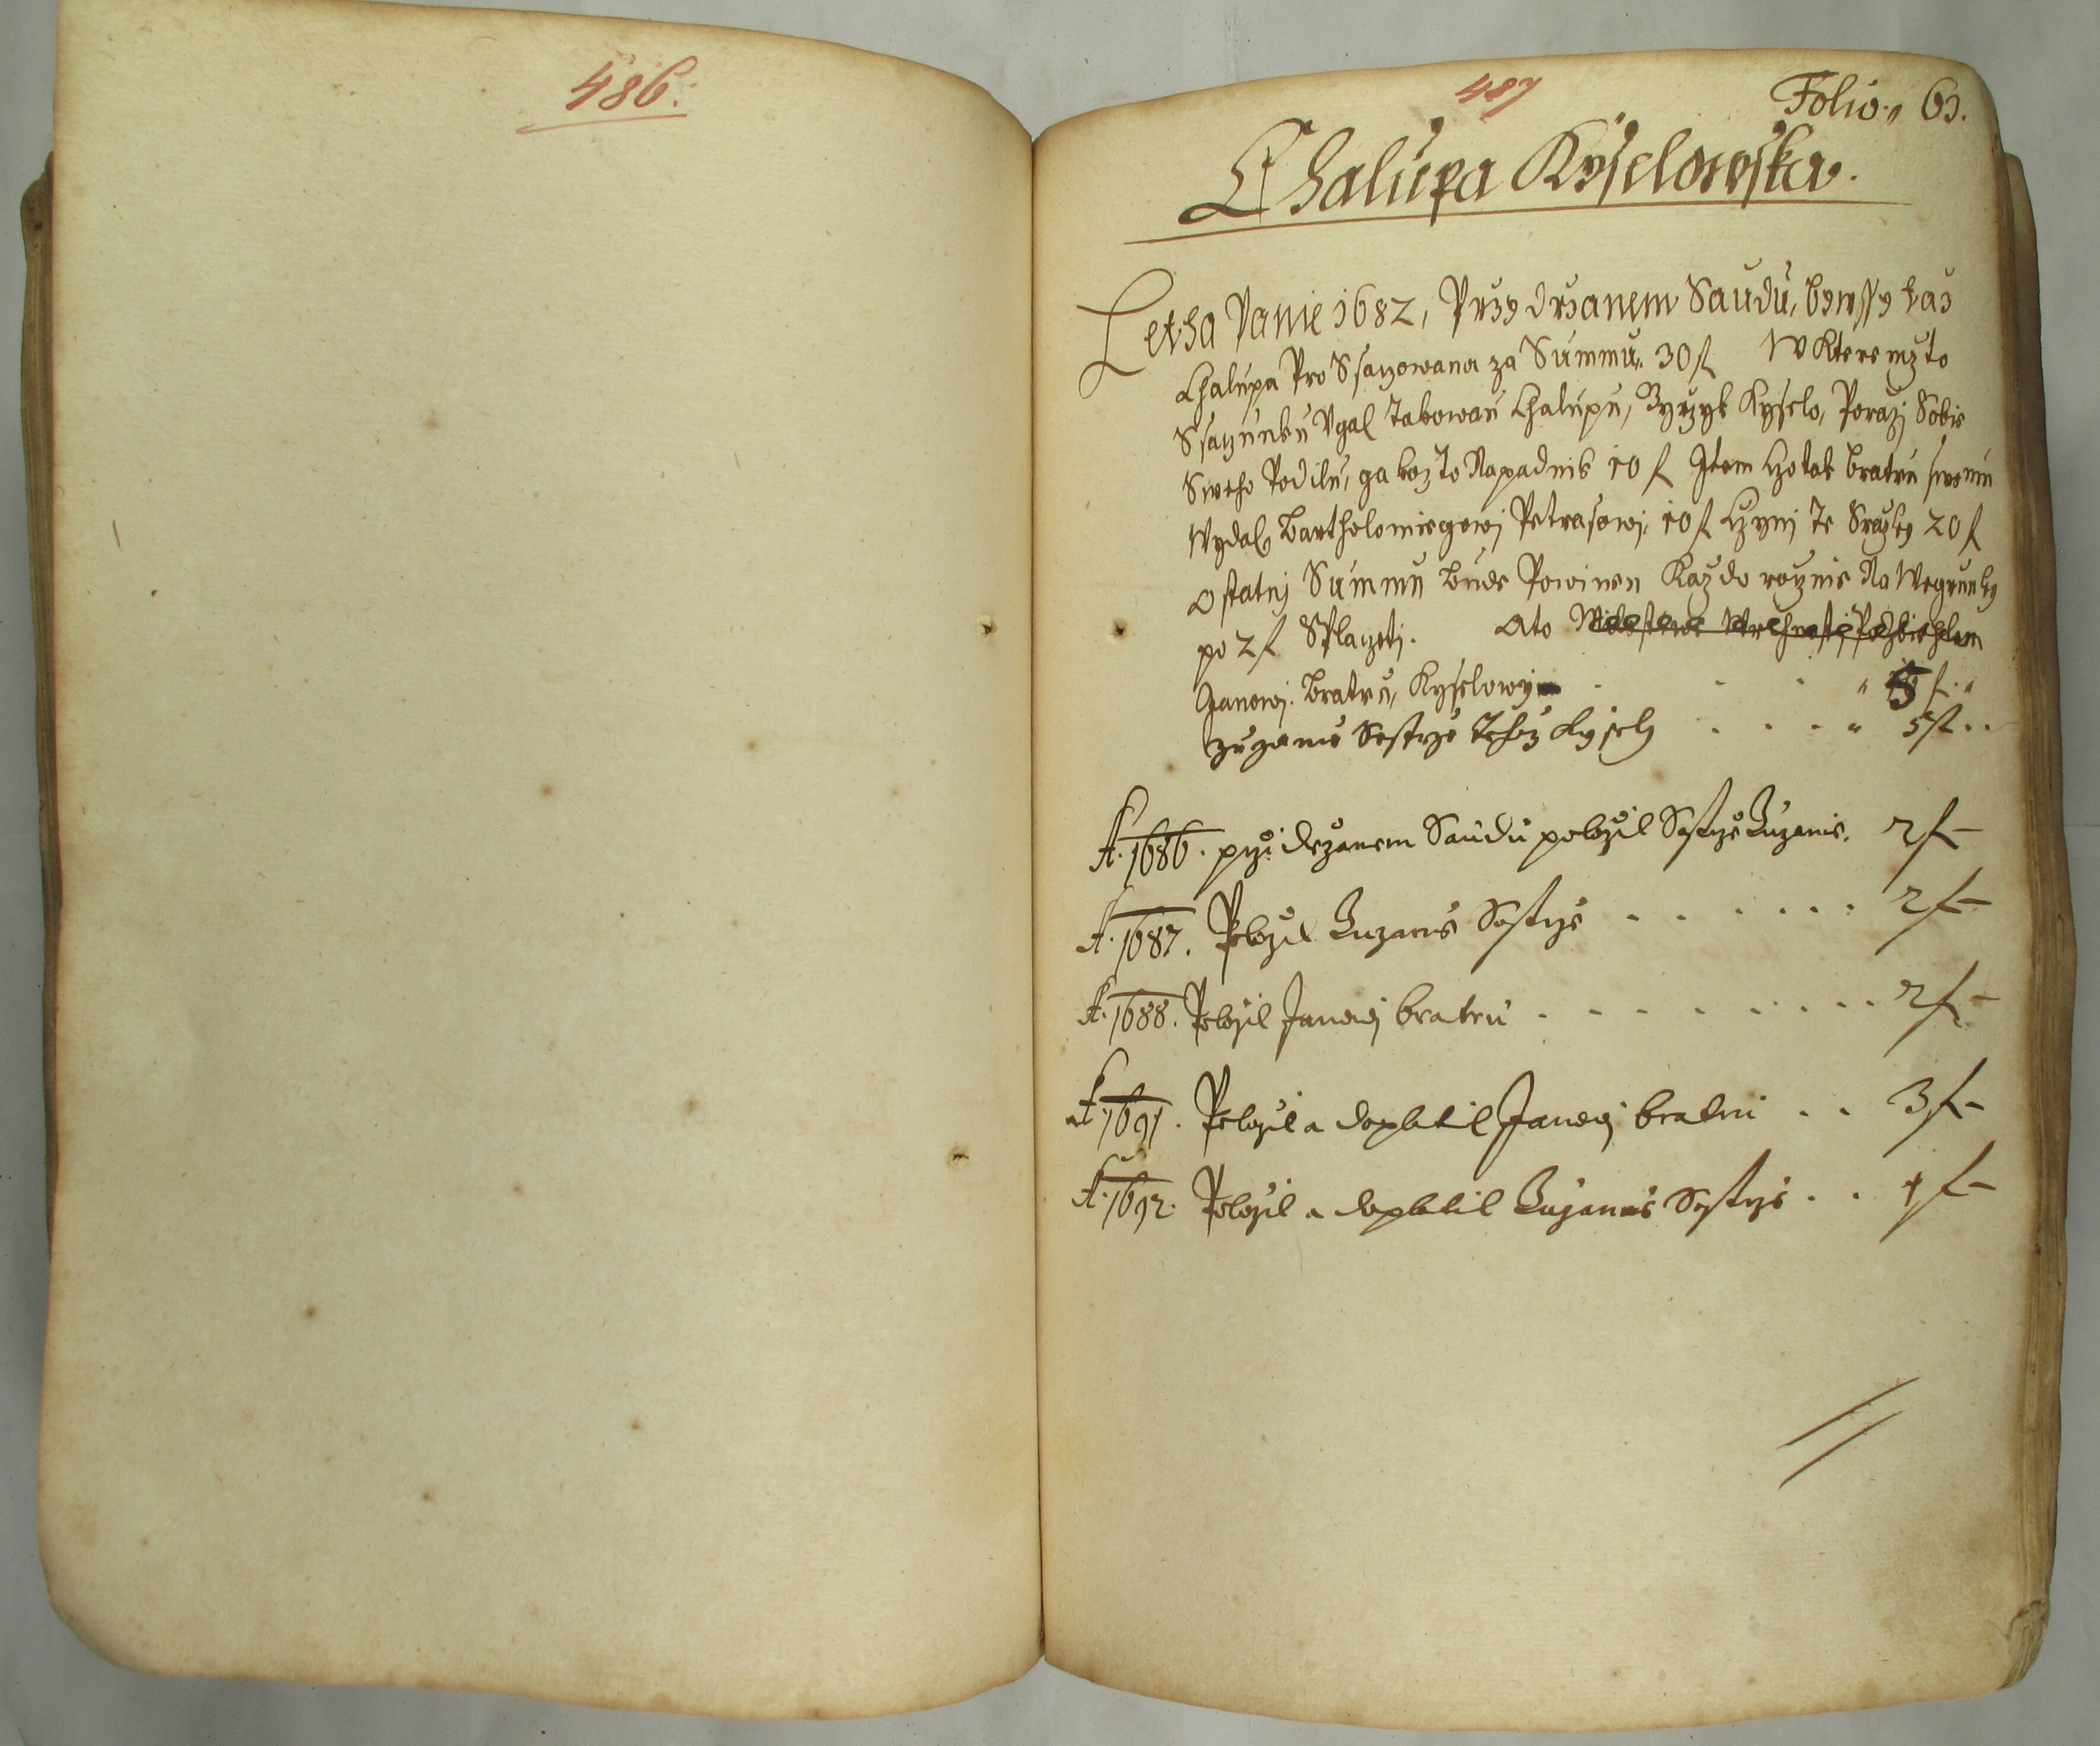 486.
487
Folio 63.
Chalupa Kyselowska.
Letha Panie 1682, Przy drzanem Saudu, bywssy tao
Chalupa Pro Ssaczowana za Summu 30 f W Kteremzto
Ssaczunku Ugal takowau Chalupu, Gyrzyk Kyselo, Porazy Sobie
Sweho Podilu, gakozto Napadnik 10 f Item Czotak bratru swemu
Wydal Bartholomiegowj Petrasowj 10 f Czynj te Srazky 20 f
Ostatnj Summu bude Powinen Kazdo rocznie Na Wegrunky
po 2 f Splaczetj. Ato
Janowj Bratru, Kyselowy 5 f
Zuzanie Sestrze Tehoz Kysely 5 f
A. 1686. przi drzanem Saudu polozil Sestrze Zuzanie. 2 f
A. 1687. Polozil Zuzanie Sestrze 2 f
A. 1688. Polozil Janowj bratru 2 f
A. 1691. Polozil a doplatil Janowj bratru 3 f
A. 1692. Polozil a doplatil Zuzanie Sestrze 1 f